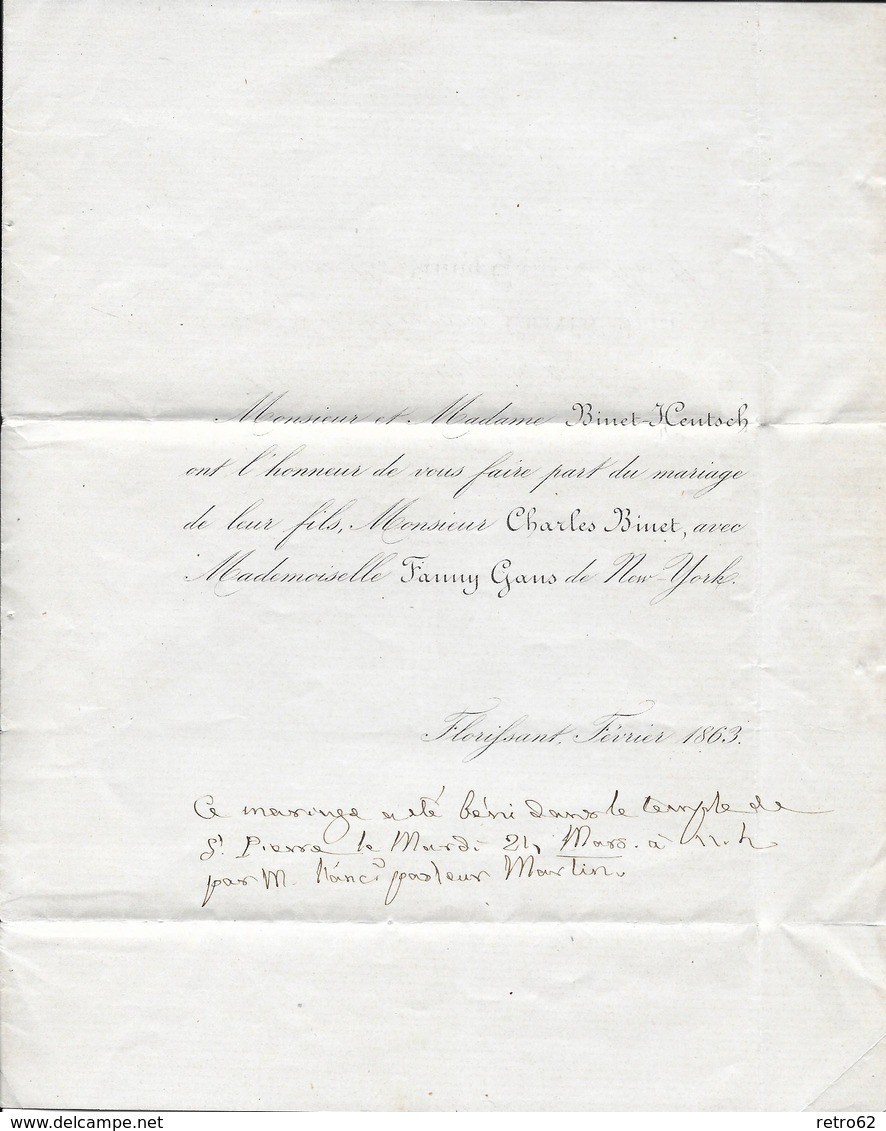 Monsieur et Madame Binet-Hentsch
ont l'honneur de vous faire part du mariage
de leur fils, Monsieur Charles Binet, avec
Mademoiselle Fanny Gans de New-York.
Florissant, Février 1863.
Ce mariage a été béni dans le temple de
St Pierre le Mardi Mars. à h
par M. pasteur Martin.
delcampe.net
retro62